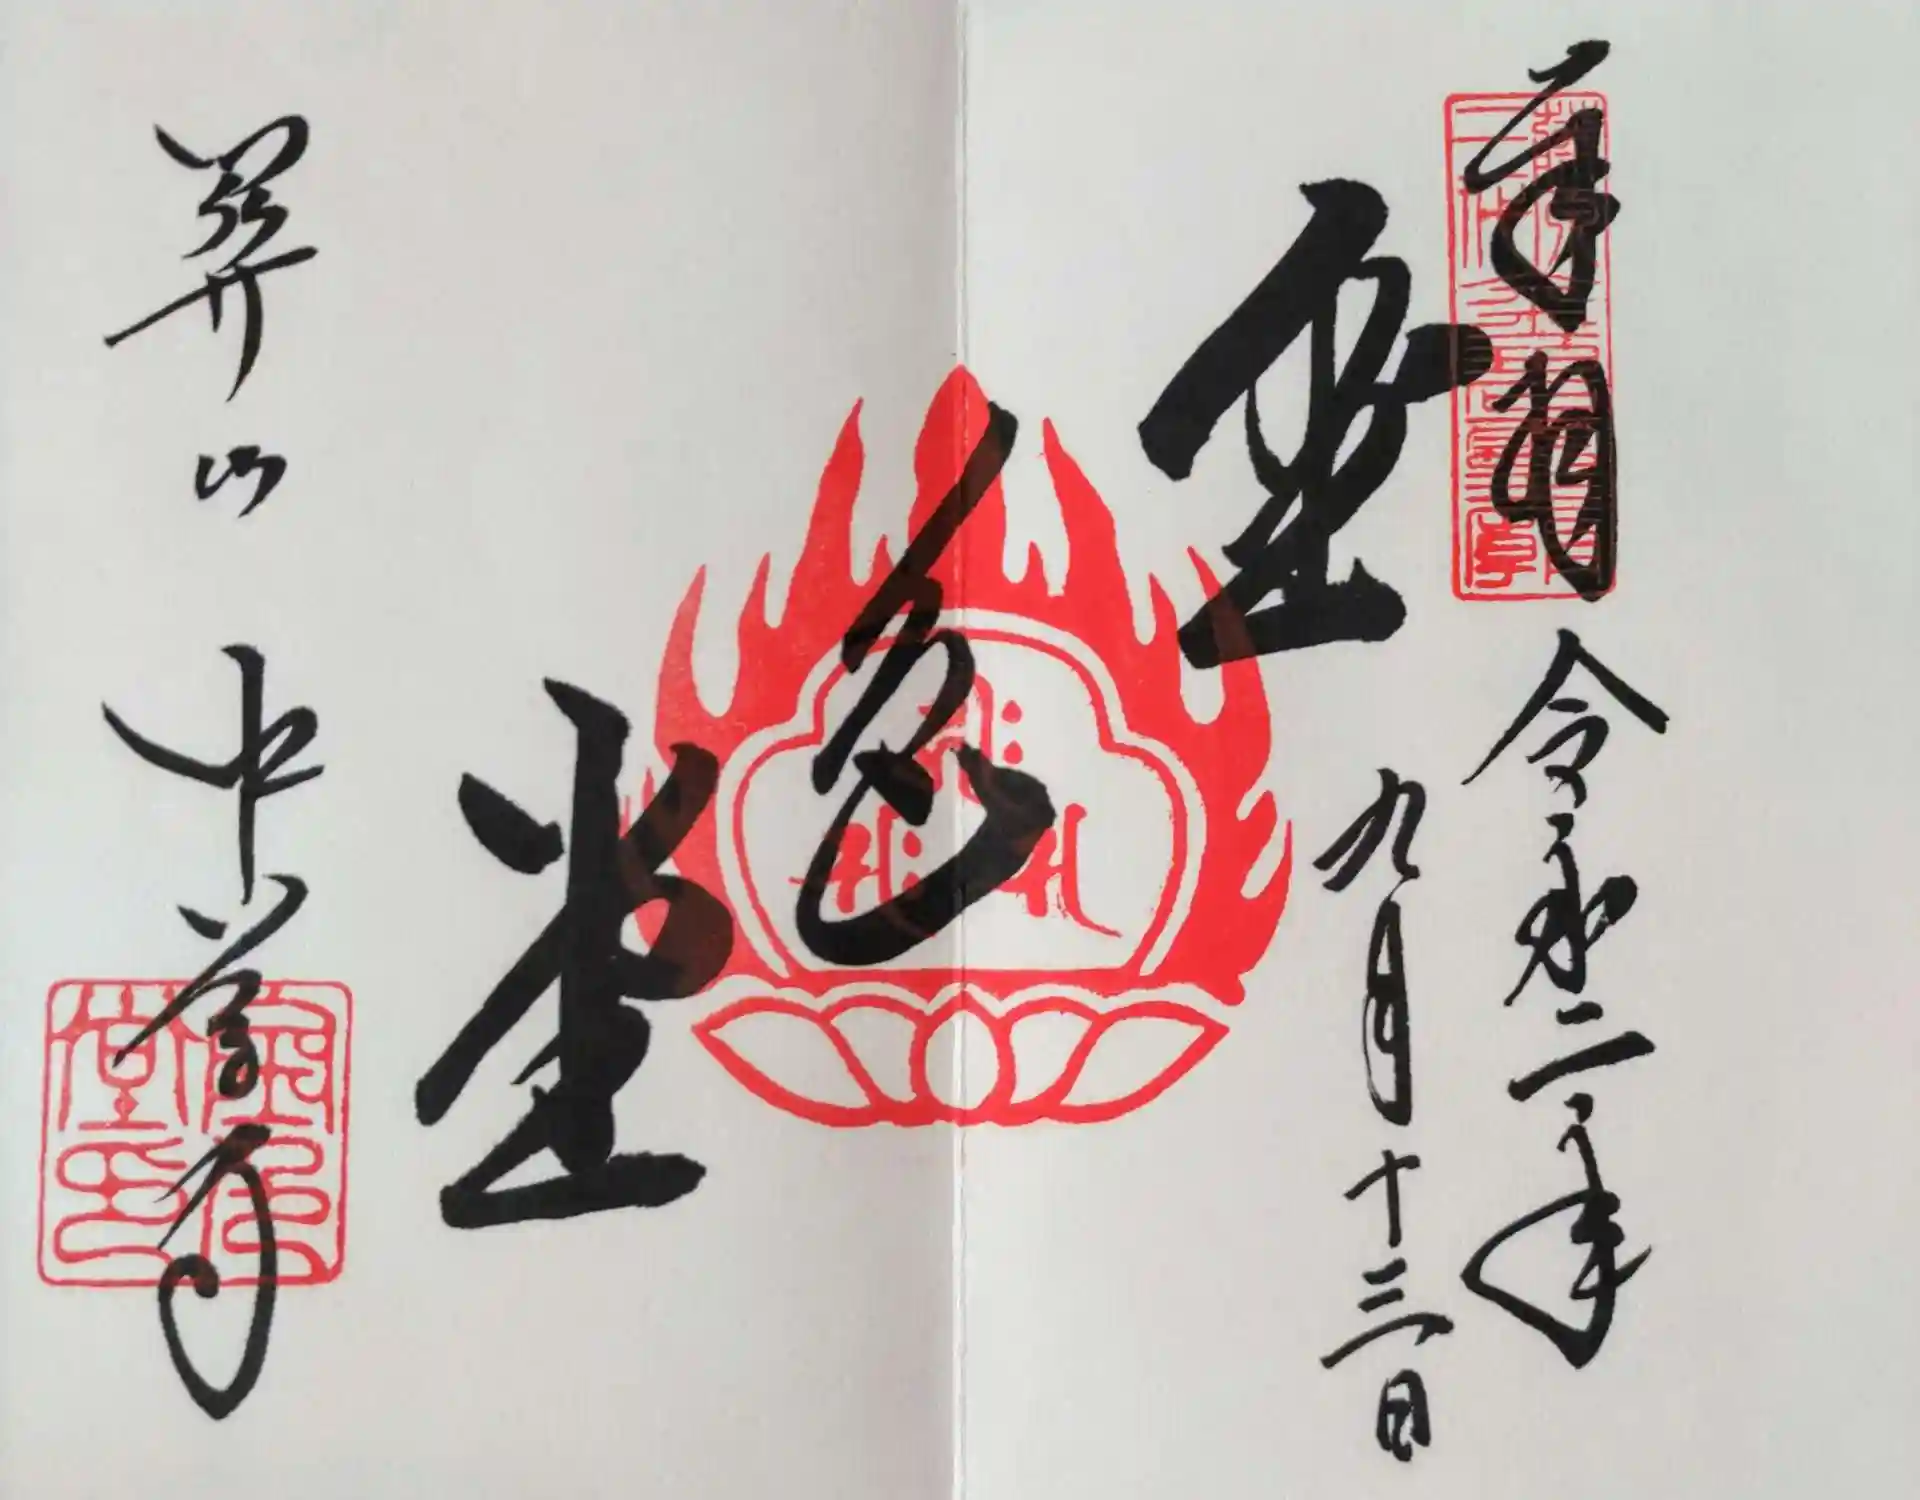 奉拝
令和二年
九月十三日
金色堂
関山 中尊寺
金色堂印